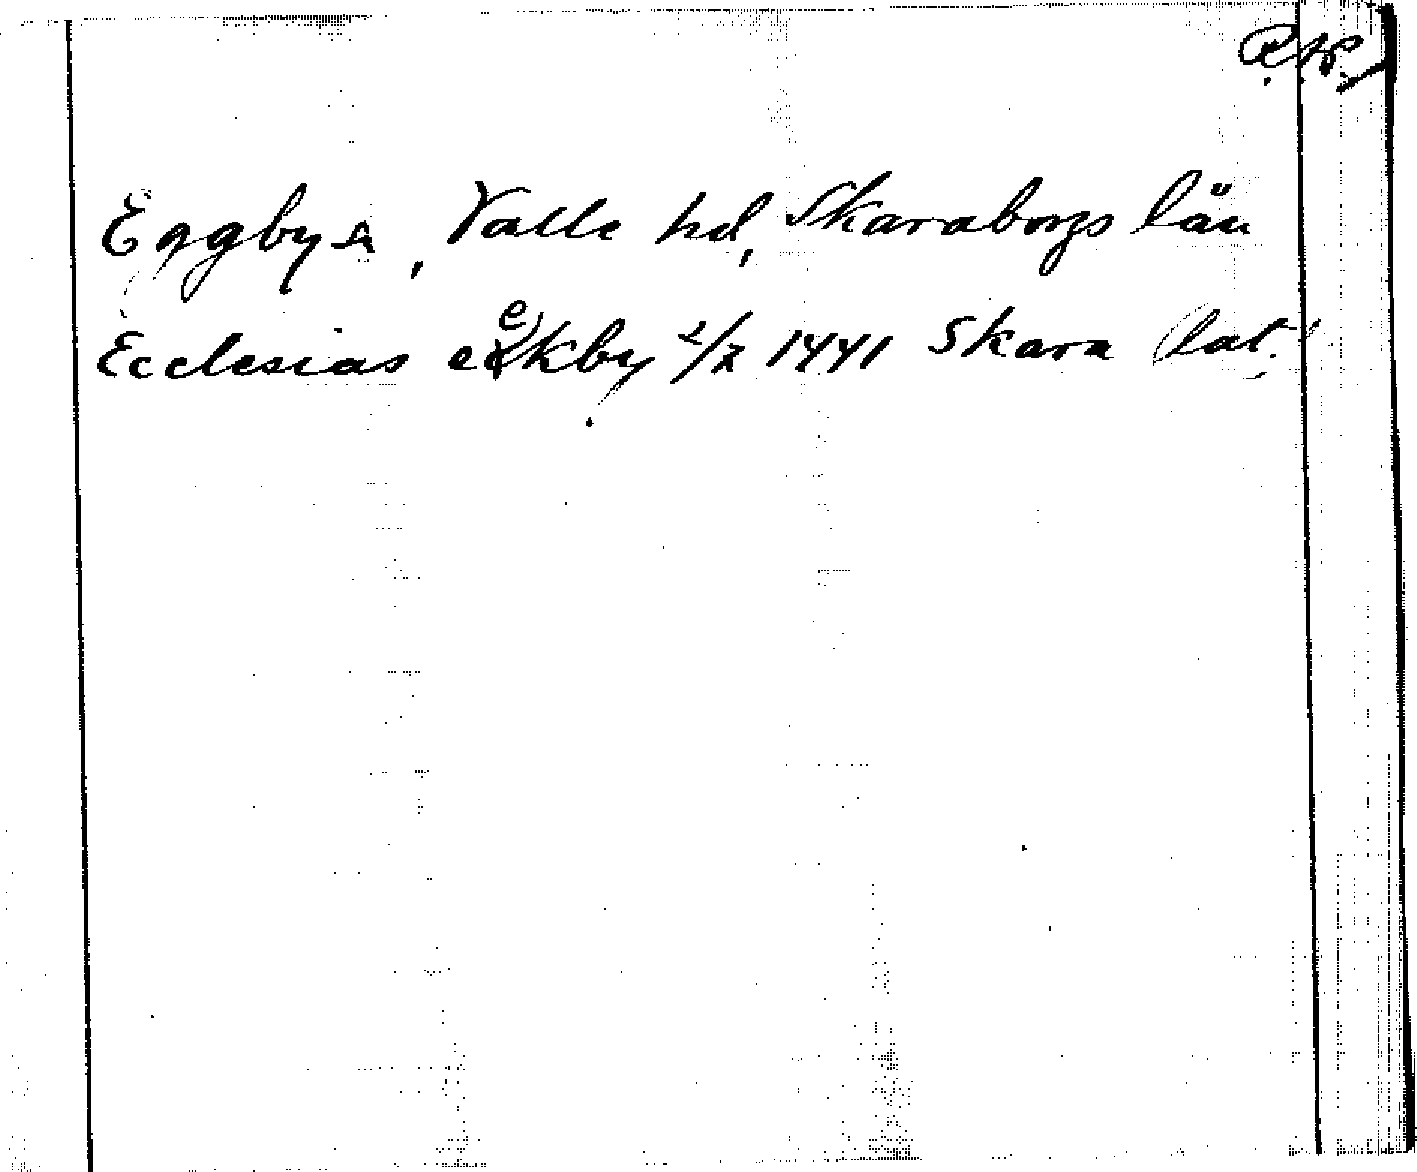 Eggby sn, Valle hd, Skaraborgs län
Ecclesias eekby 2/X 1441 Skara (lat.)